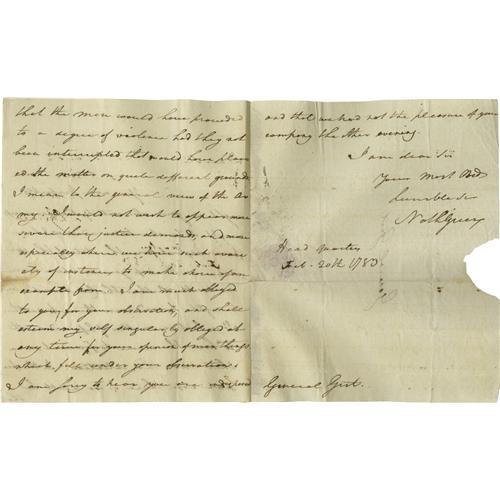 that the men would have proceeded
to a degree of violence had they not
been interrupted that would have plac
ed the matter on quite different grounds
I mean to the general view of the Ar
my. I would not wish to appear more
severe than justice demands, and more
especially where we have such a
city of to make choice upon
exempt from. I am much obliged
to you, for your observations, and shall
esteem my self singularly obliged at
any time for your opinion of men, things
which fall under your observation.
I am sorry to hear you are indisposed
and that we had not the pleasure of your
company the other evening.
I am dear Sir
Your Most Obd
humble Sr
Nath Greene
Head Quarters
Feb. 20th 1783
General Gist.